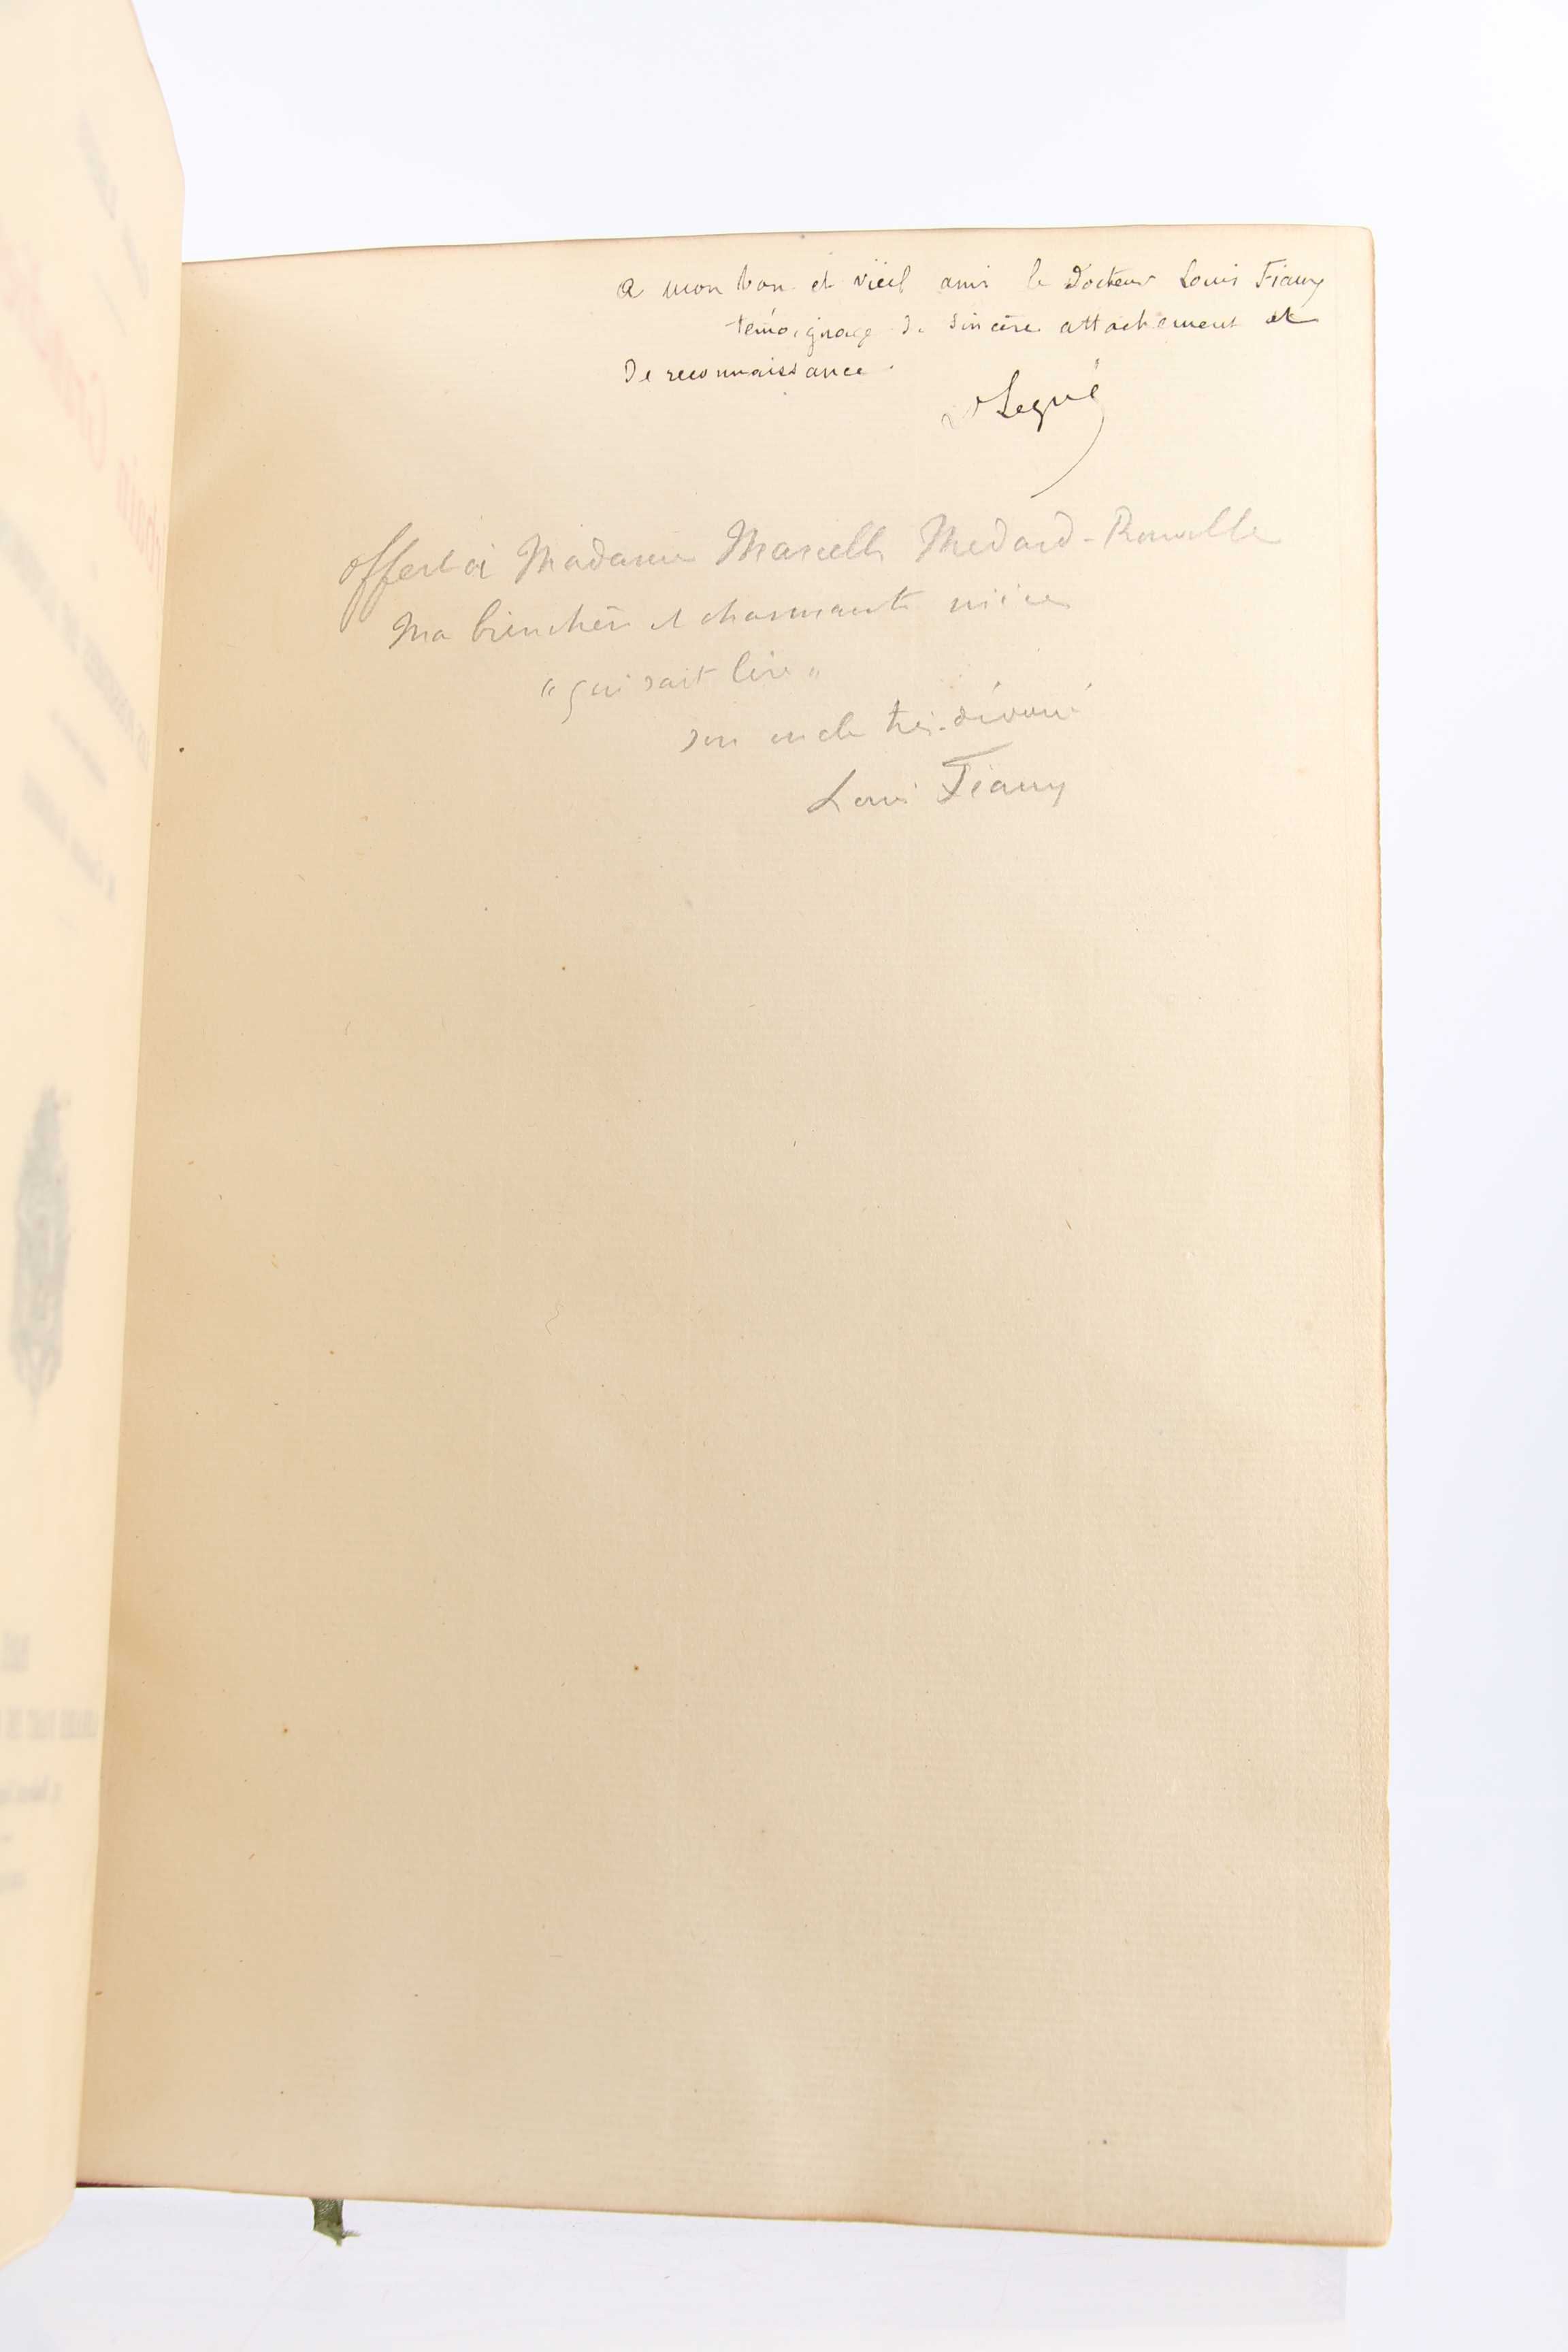 A mon bon et vieil ami le Docteur Louis Fiaux
témoignage de sincère attachement et
De reconnaissance.
Dr Legué
offert à Madame Marcelle Medard-
Ma bien chère et charmante nièce
"qui sait lire"
son oncle très-dévoué
Louis Fiaux